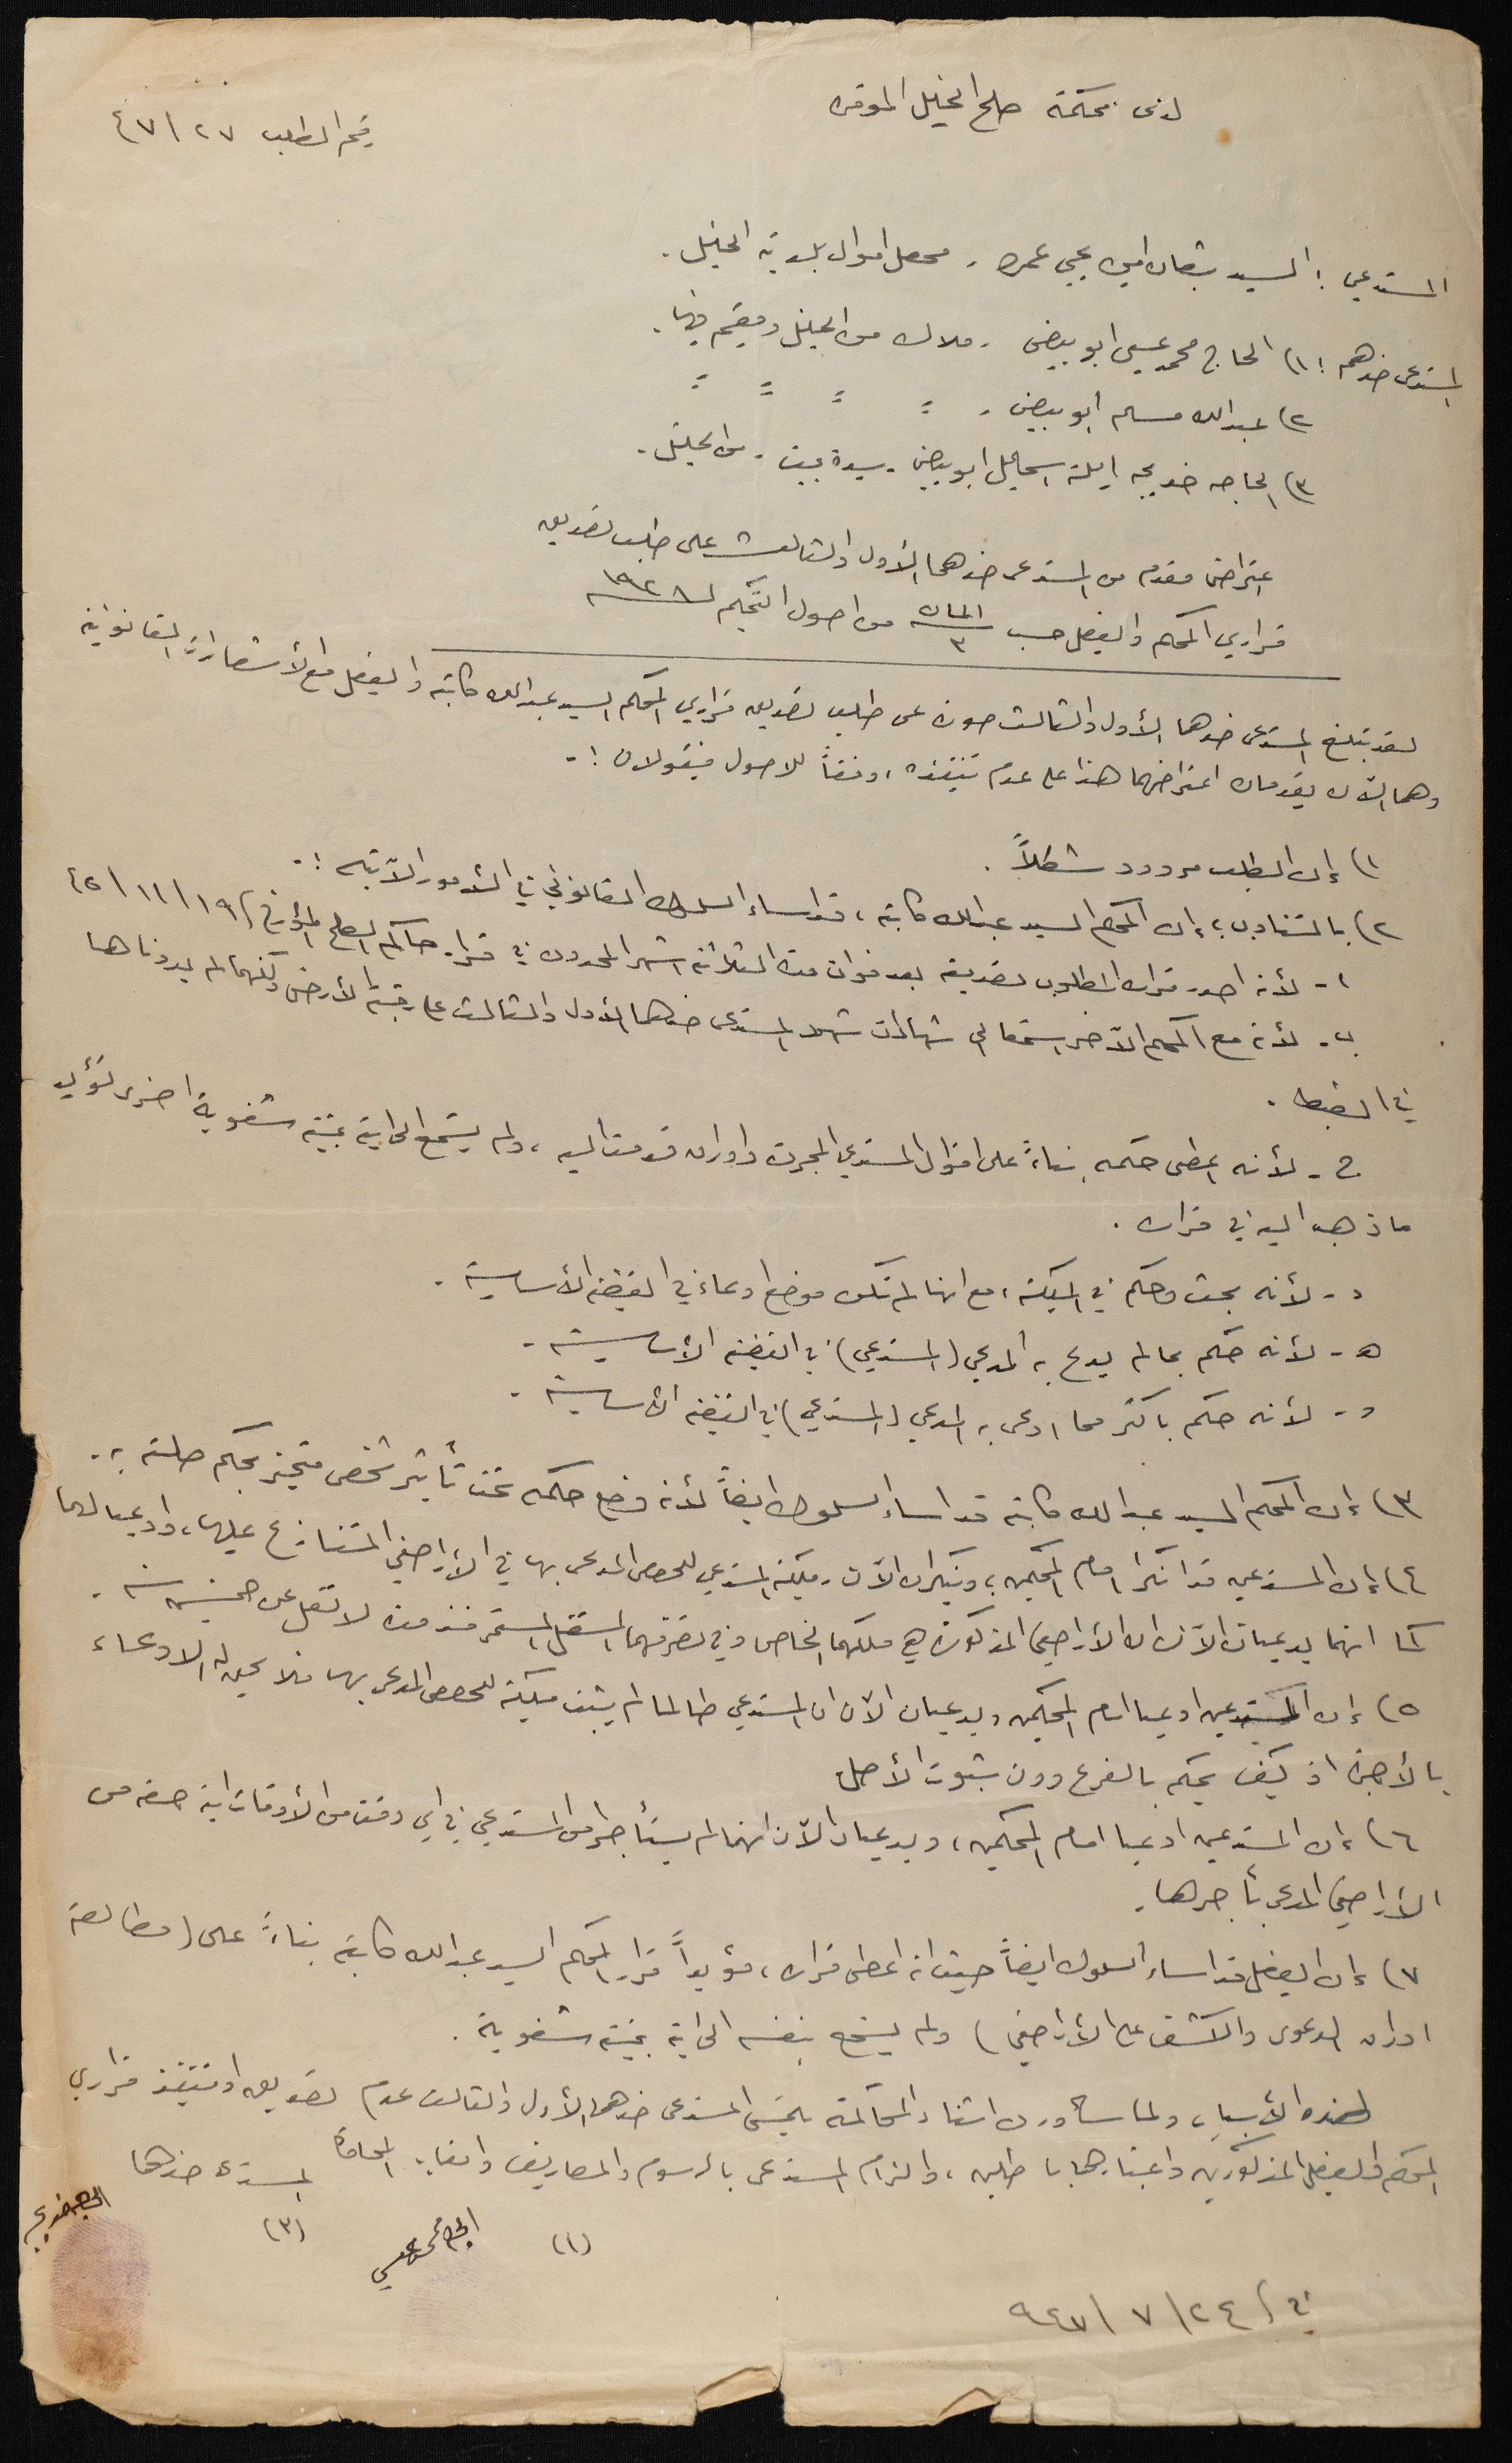 لدى محكمة صلح الخليل الموقره
رقم الطلب ٢٧ / ٤٧
المستدعي : السيد امين يحيى عمرو ، محصل اموال بلدية الخليل .
المستدعى ضدهم : ١) الحاج محمد عيسى ابو بيض ، ملاك من الخليل ومقيم فيها .
٢) عبدالله مسلم ابو بيض . = = = =
٣) الحاجه خديجه ابنة اسماعيل ابو بيض . سيدة بيت . من الخليل .
اعتراض مقدم من المستدعى ضدهما الأول والثالث على طلب تصديق
قراري المحكم والفيصل حسب الماده ٣ من اصول التحكيم لـ ١٩٢٨
لقد تبلغ المستدعى ضدهما الأول والثالث صورة عن طلب تصديق قراري المحكم السيد عبدالله كاتبه والفيصل مع الأشعارات القانونية
وهما الآن يقدمان اعتراضهما هذا على عدم تنفيذه ، وفقاً للاصول فيقولان : -
١) إن الطلب مردود شكلاً .
٢) بالتناوب ؛ إن المحكم السيد عبدالله كاتبه ، قد اساء السلوك القانوني في الأمور الآتيه : -
١ - لأنه اصدر قراره المطلوب تصديقه بعد فوات مدة الثلاثة اشهر المحدوده في قرار حاكم الصلح المؤرخ ١٩ / ١١ / ٤٥
ب - لأنه مع المحكم الآخر استمعا الى شهادات شهود المستدعى ضدهما الأول والثالث على رقبة الأرض ولكنهما لم يدوناها
في الضبط .
ج - لأنه اعطى حكمه بناءً على اقوال المستدعي المجردة واوراق قدمت اليه ، ولم يستمع الى اية بينة شفوية اخرى تؤيد
ما ذهب اليه في قراره .
د - لأنه بحث وحكم في الملكية ، مع انها لم تكن موضع ادعاء في القضية الأساسية .
ه - لأنه حكم بما لم يدع به المدعي (المستدعي) في القضية الأساسية .
و - لأنه حكم باكثر مما ادعى به المدعي (المستدعي) في القضية الأساسية .
٣) إن المحكم السيد عبدالله كاتبه قد اساء السلوك ايضاً لأنه وضع حكمه تحت تأثير شخص متحيز بحكم صلته به .
٤) إن المستدعين قد انكرا امام المحكمين ، وينكران الآن ملكية المستدعي للحصص المدعى بها في الأراضي المتنازع عليها ، وادعيا لهما
كما انهما يدعيان الآن ان الأراضي المذكورة هي ملكهما الخاص وفي تصرفهما المستقل المستمر منذ مدة لا تقل عن خمسين سنة .
٥) إن المستدعين ادعيا امام المحكمين ويدعيان الآن ان المستدعي طالما لم يثبت ملكية للحصص المدعى بها فلا يحق له الادعاء
بالأجرة اذ كيف يحكم بالفرع دون ثبوت الأصل
٦) إن المستدعين ادعيا امام المحكمين ، ويدعيان الآن انهما لم يستأجرا من المستدعي في اي وقت من الأوقات اية حصة من
الأراضي المدعى بأجرها .
٧) إن الفيصل قد اساء السلوك ايضاً حيث انه اعطى قراره ، مؤيداً قرار المحكم السيد عبدالله كاتبه بناءً على (مطالعة
اوراق الدعوى والكشف على الأراضي) ولم يستمع بنفسه الى اية بينة شفوية .
لهذه الأسباب ولما سيورد اثناء المحاكمة يلتمس المستدعى ضدهما الأول والثالث عدم تصديق او تنفيذ قراري
المحكم والفيصل المذكورين واعتبارهما باطلين ، والزام المستدعى بالرسوم والمصاريف واتعاب المحاماة
المستدعى ضدهما
(١) الحاج محمد عيسى (٣) الحاجه خديجه
في ٢٤ / ٧ / ٩٤٧